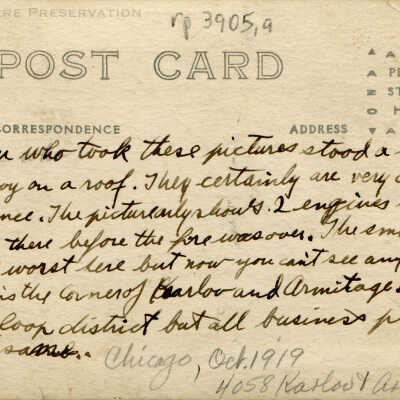 ere Preservation
rp 3905,a
POST CARD
CORRESPONDENCE
ADDRESS
who took these pictures stood a
on a roof. They certainly are very
The picture only shows 2 engines
there before the fire was over. The
worst here but now you can't see any
is the corner of Karlov and Armitage
loop district but all business
same..
Chicago, Oct. 1919
4058 Karlov &